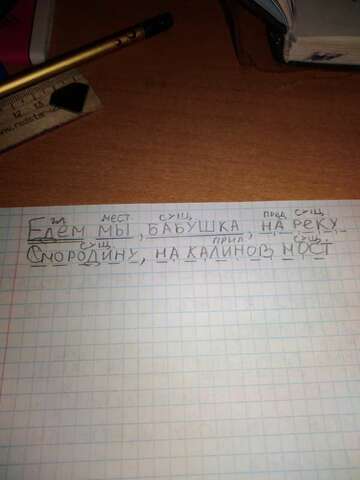 12 13
www.redstar
гл мест. сущ. пред. сущ.
Едем мы, бабушка, на реку
сущ прил сущ.
Смородину, на калинов мост